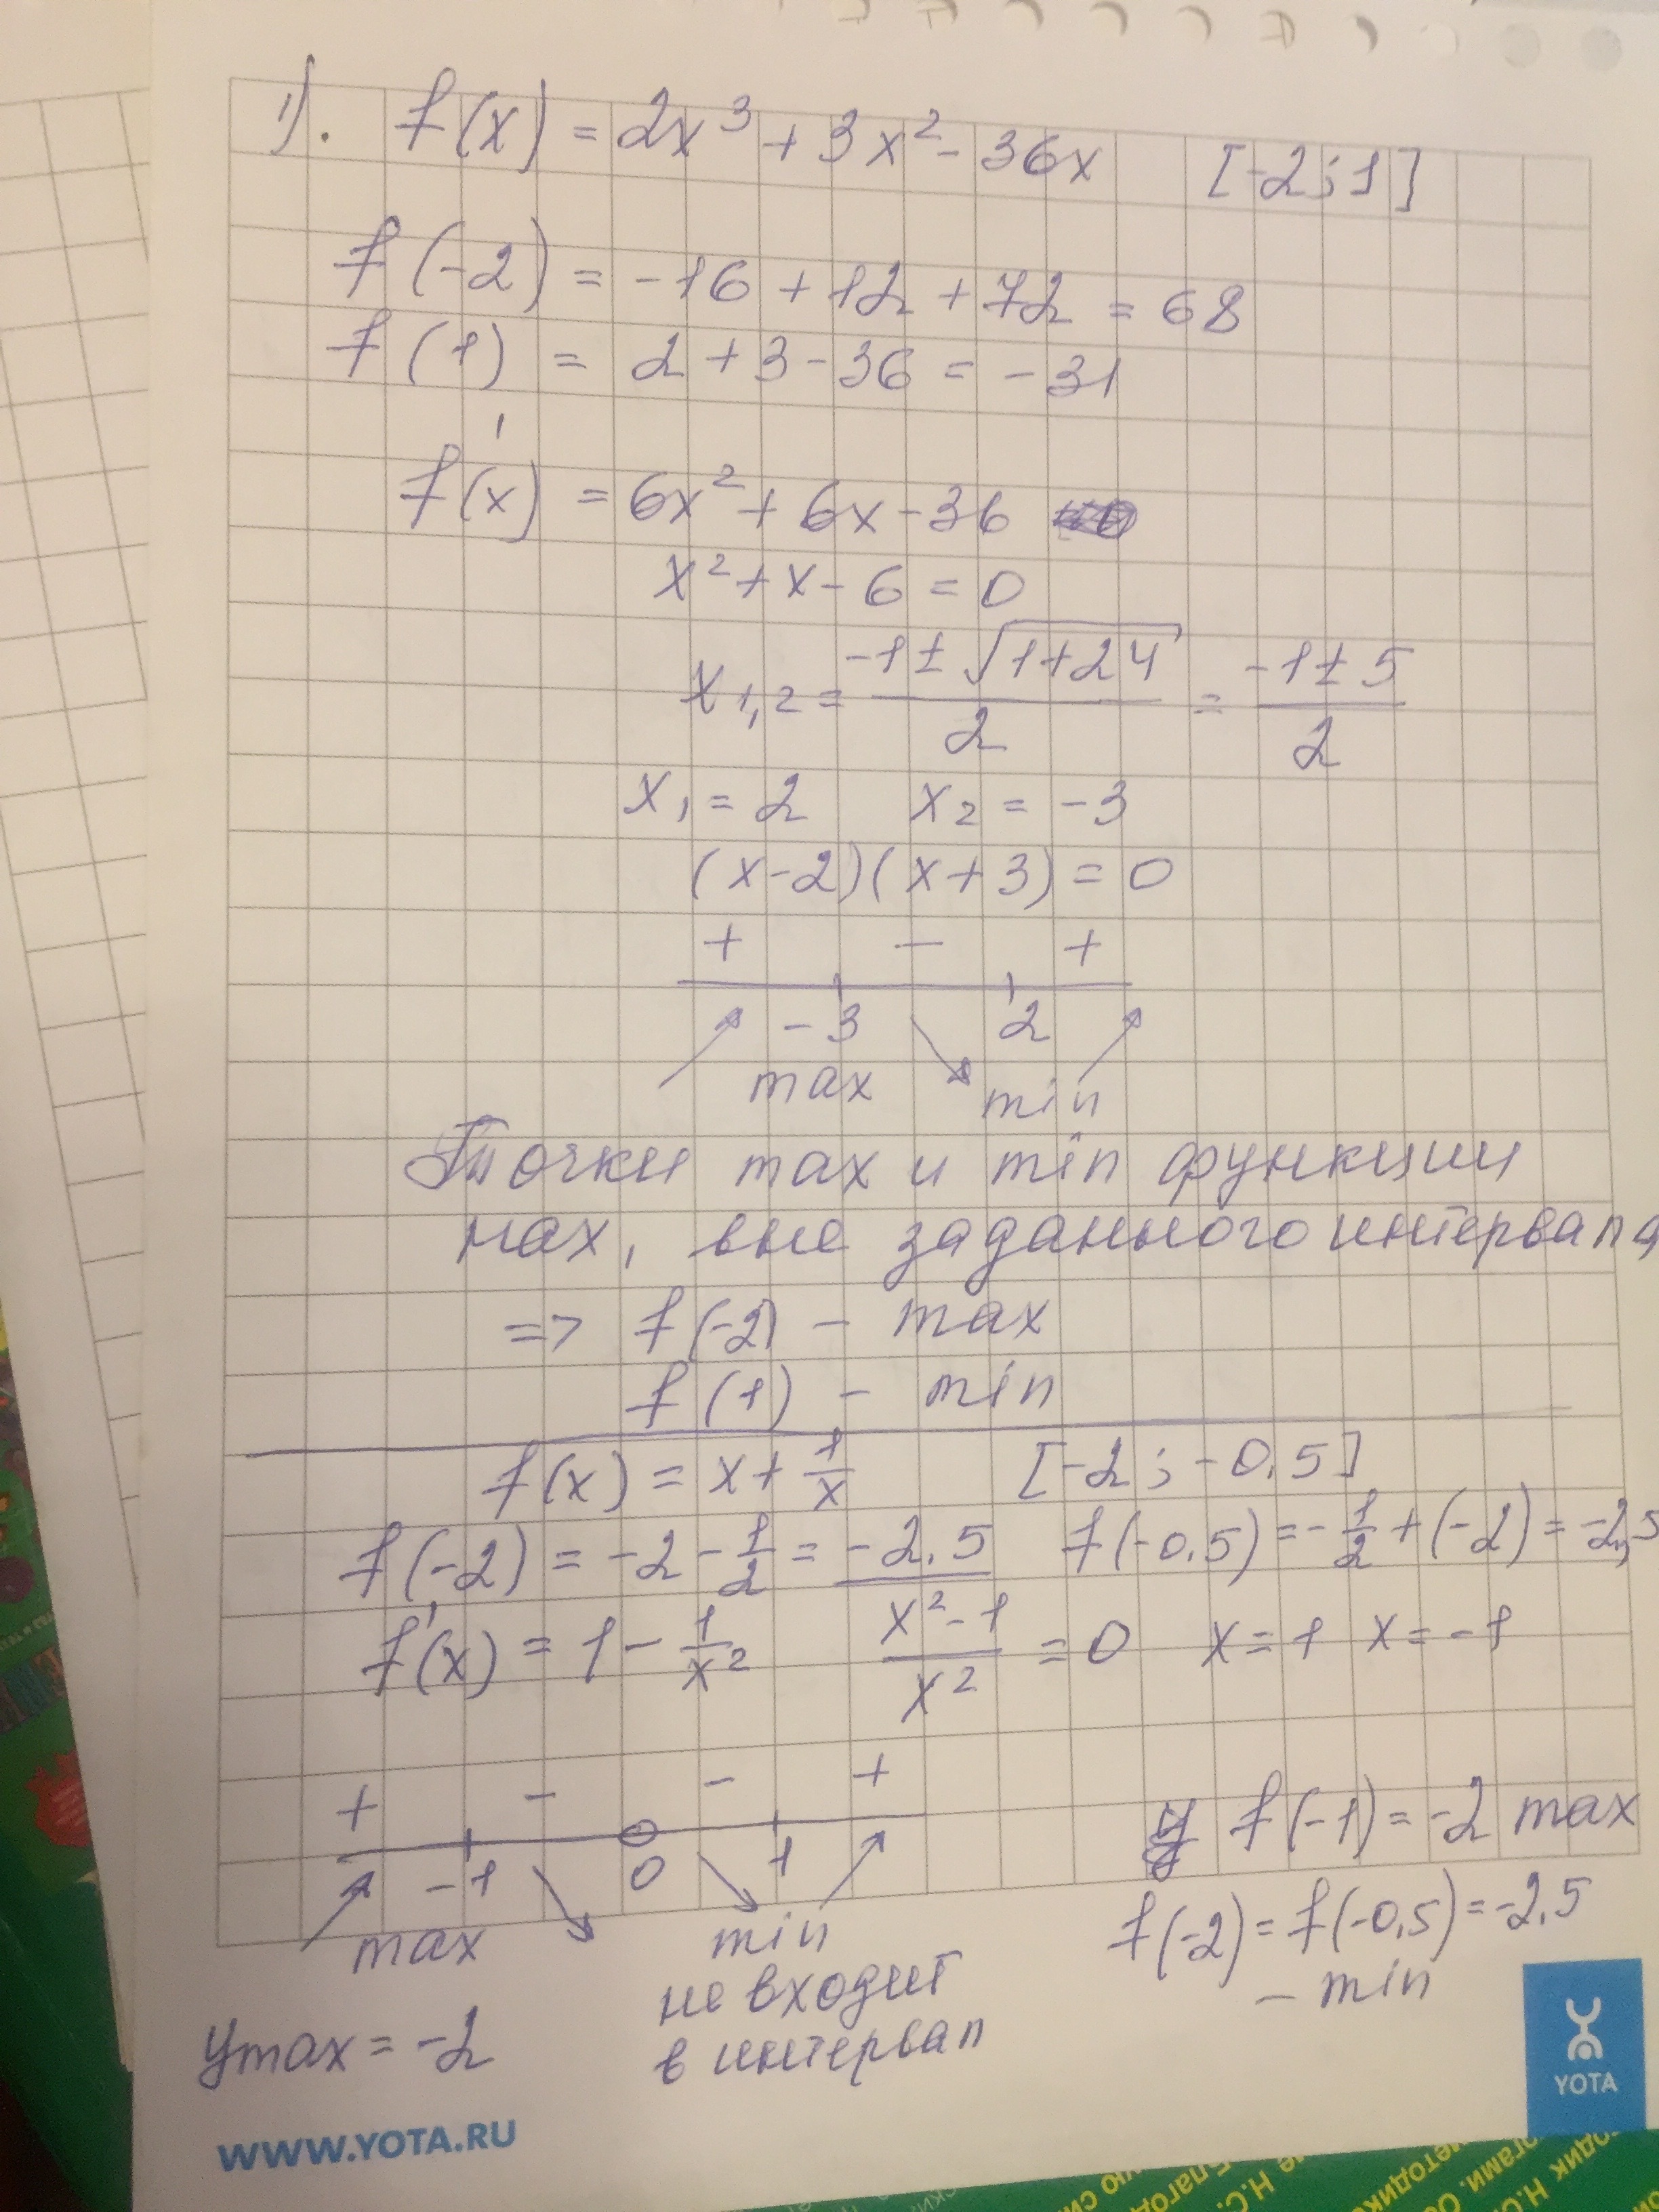 1). f(x) = 2x³ + 3x² - 36x [-2; 1]
f(-2) = -16 + 12 + 72 = 68
f(1) = 2 + 3 - 36 = -31
f'(x) = 6x² + 6x - 36
x² + x - 6 = 0
x₁,₂ = (-1 ± √(1+24))/2 = (-1 ± 5)/2
x₁ = 2 x₂ = -3
(x-2)(x+3) = 0
+ - +
-3 2
max min
Точки max и min функции
нах, вне заданного интервала
=> f(-2) - max
f(1) - min
f(x) = x + 1/x [-2; -0,5]
f(-2) = -2 - 1/2 = -2,5 f(-0,5) = -1/2 + (-2) = -2,5
f'(x) = 1 - 1/x² (x²-1)/x² = 0 x = 1 x = -1
+ - - +
-1 0 1
max min
не входит
в интервал
y max = -2
f(-1) = -2 max
f(-2) = f(-0,5) = -2,5
- min
YOTA
WWW.YOTA.RU